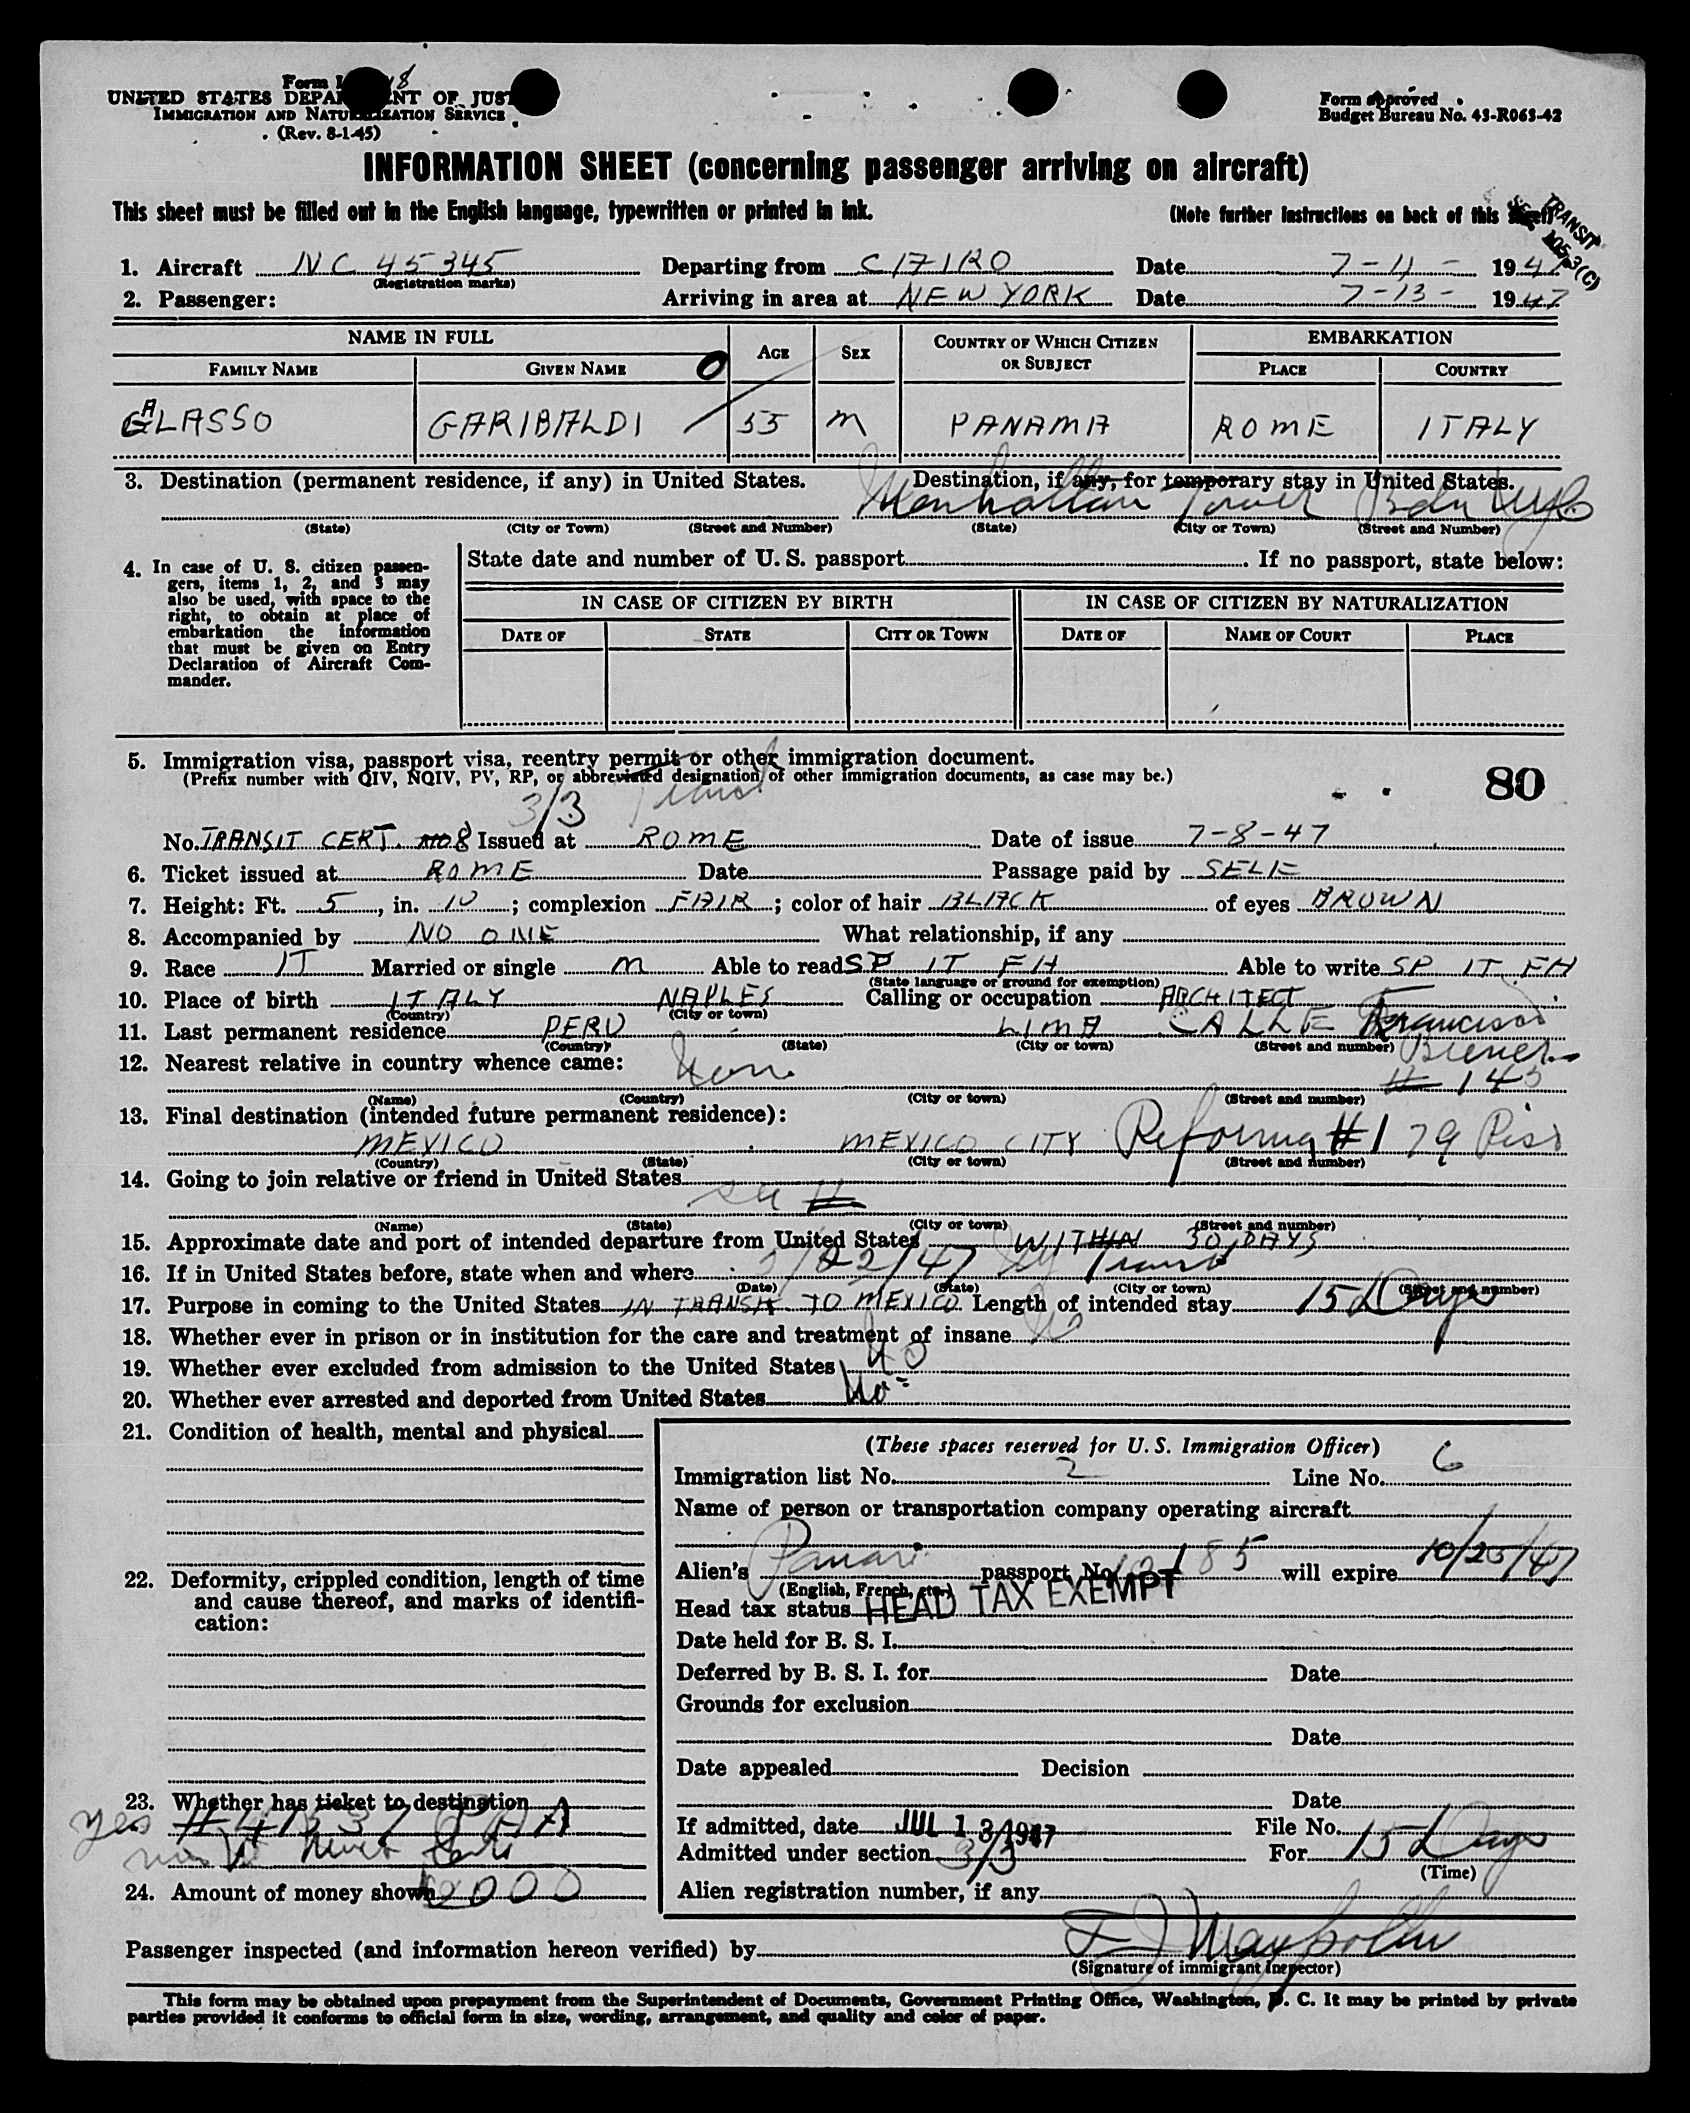 Form I 8
UNITED STATES DEPA NT OF JUST
IMMIGRATION AND NATURALIZATION SERVICE
(Rev. 8-1-45)
Form approved
Budget Bureau No. 43-R063-42
INFORMATION SHEET (concerning passenger arriving on aircraft)
This sheet must be filled out in the English language, typewritten or printed in ink.
(Note further instructions on back of this sheet)
TRANSIT
SEC 105.3(C)
1. Aircraft NC 45345 Departing from CAIRO Date 7-11- 1947
(Registration marks)
2. Passenger: Arriving in area at NEW YORK Date 7-13- 1947
NAME IN FULL AGE SEX COUNTRY OF WHICH CITIZEN OR SUBJECT EMBARKATION
FAMILY NAME GIVEN NAME PLACE COUNTRY
GALASSO GARIBALDI O 55 M PANAMA ROME ITALY
3. Destination (permanent residence, if any) in United States. Destination, if any, for temporary stay in United States.
Manhattan Tower
(State) (City or Town) (Street and Number) (State) (City or Town) (Street and Number)
4. In case of U. S. citizen passengers, items 1, 2, and 3 may also be used, with space to the right, to obtain at place of embarkation the information that must be given on Entry Declaration of Aircraft Commander.
State date and number of U. S. passport. If no passport, state below:
IN CASE OF CITIZEN BY BIRTH IN CASE OF CITIZEN BY NATURALIZATION
DATE OF STATE CITY OR TOWN DATE OF NAME OF COURT PLACE
5. Immigration visa, passport visa, reentry permit or other immigration document.
(Prefix number with QIV, NQIV, PV, RP, or abbreviated designation of other immigration documents, as case may be.)
80
3/3 Transit
No. TRANSIT CERT. NO 8 Issued at ROME Date of issue 7-8-47
6. Ticket issued at ROME Date Passage paid by SELF
7. Height: Ft. 5, in. 10; complexion FAIR; color of hair BLACK of eyes BROWN
8. Accompanied by NO ONE What relationship, if any
9. Race IT Married or single M Able to read SP IT FH Able to write SP IT FH
(State language or ground for exemption)
10. Place of birth ITALY NAPLES Calling or occupation ARCHITECT
(Country) (City or town)
11. Last permanent residence PERU LIMA CALLE Francisco
(Country) (State) (City or town) (Street and number)
12. Nearest relative in country whence came: None
# 145
(Name) (Country) (City or town) (Street and number)
13. Final destination (intended future permanent residence):
MEXICO MEXICO CITY Reforma #1 Piso
(Country) (State) (City or town) (Street and number)
14. Going to join relative or friend in United States
(Name) (State) (City or town) (Street and number)
15. Approximate date and port of intended departure from United States WITHIN 30 DAYS
16. If in United States before, state when and where 22/47 NY Transit
(Date) (State) (City or town) (Street and number)
17. Purpose in coming to the United States IN TRANSIT TO MEXICO Length of intended stay 15 Days
18. Whether ever in prison or in institution for the care and treatment of insane No
19. Whether ever excluded from admission to the United States No
20. Whether ever arrested and deported from United States No
21. Condition of health, mental and physical
22. Deformity, crippled condition, length of time and cause thereof, and marks of identification:
23. Whether has ticket to destination
yes
24. Amount of money shown 2000
(These spaces reserved for U. S. Immigration Officer)
Immigration list No. 2 Line No. 6
Name of person or transportation company operating aircraft
Alien's Panam passport No. 185 will expire 10/25/47
(English, French, etc.)
Head tax status HEAD TAX EXEMPT
Date held for B. S. I.
Deferred by B. S. I. for Date
Grounds for exclusion
Date
Date appealed Decision
Date
If admitted, date JUL 13 1947 File No.
Admitted under section 3/3 For 15 Days
(Time)
Alien registration number, if any
Passenger inspected (and information hereon verified) by
(Signature of immigrant inspector)
This form may be obtained upon prepayment from the Superintendent of Documents, Government Printing Office, Washington, D. C. It may be printed by private
parties provided it conforms to official form in size, wording, arrangement, and quality and color of paper.